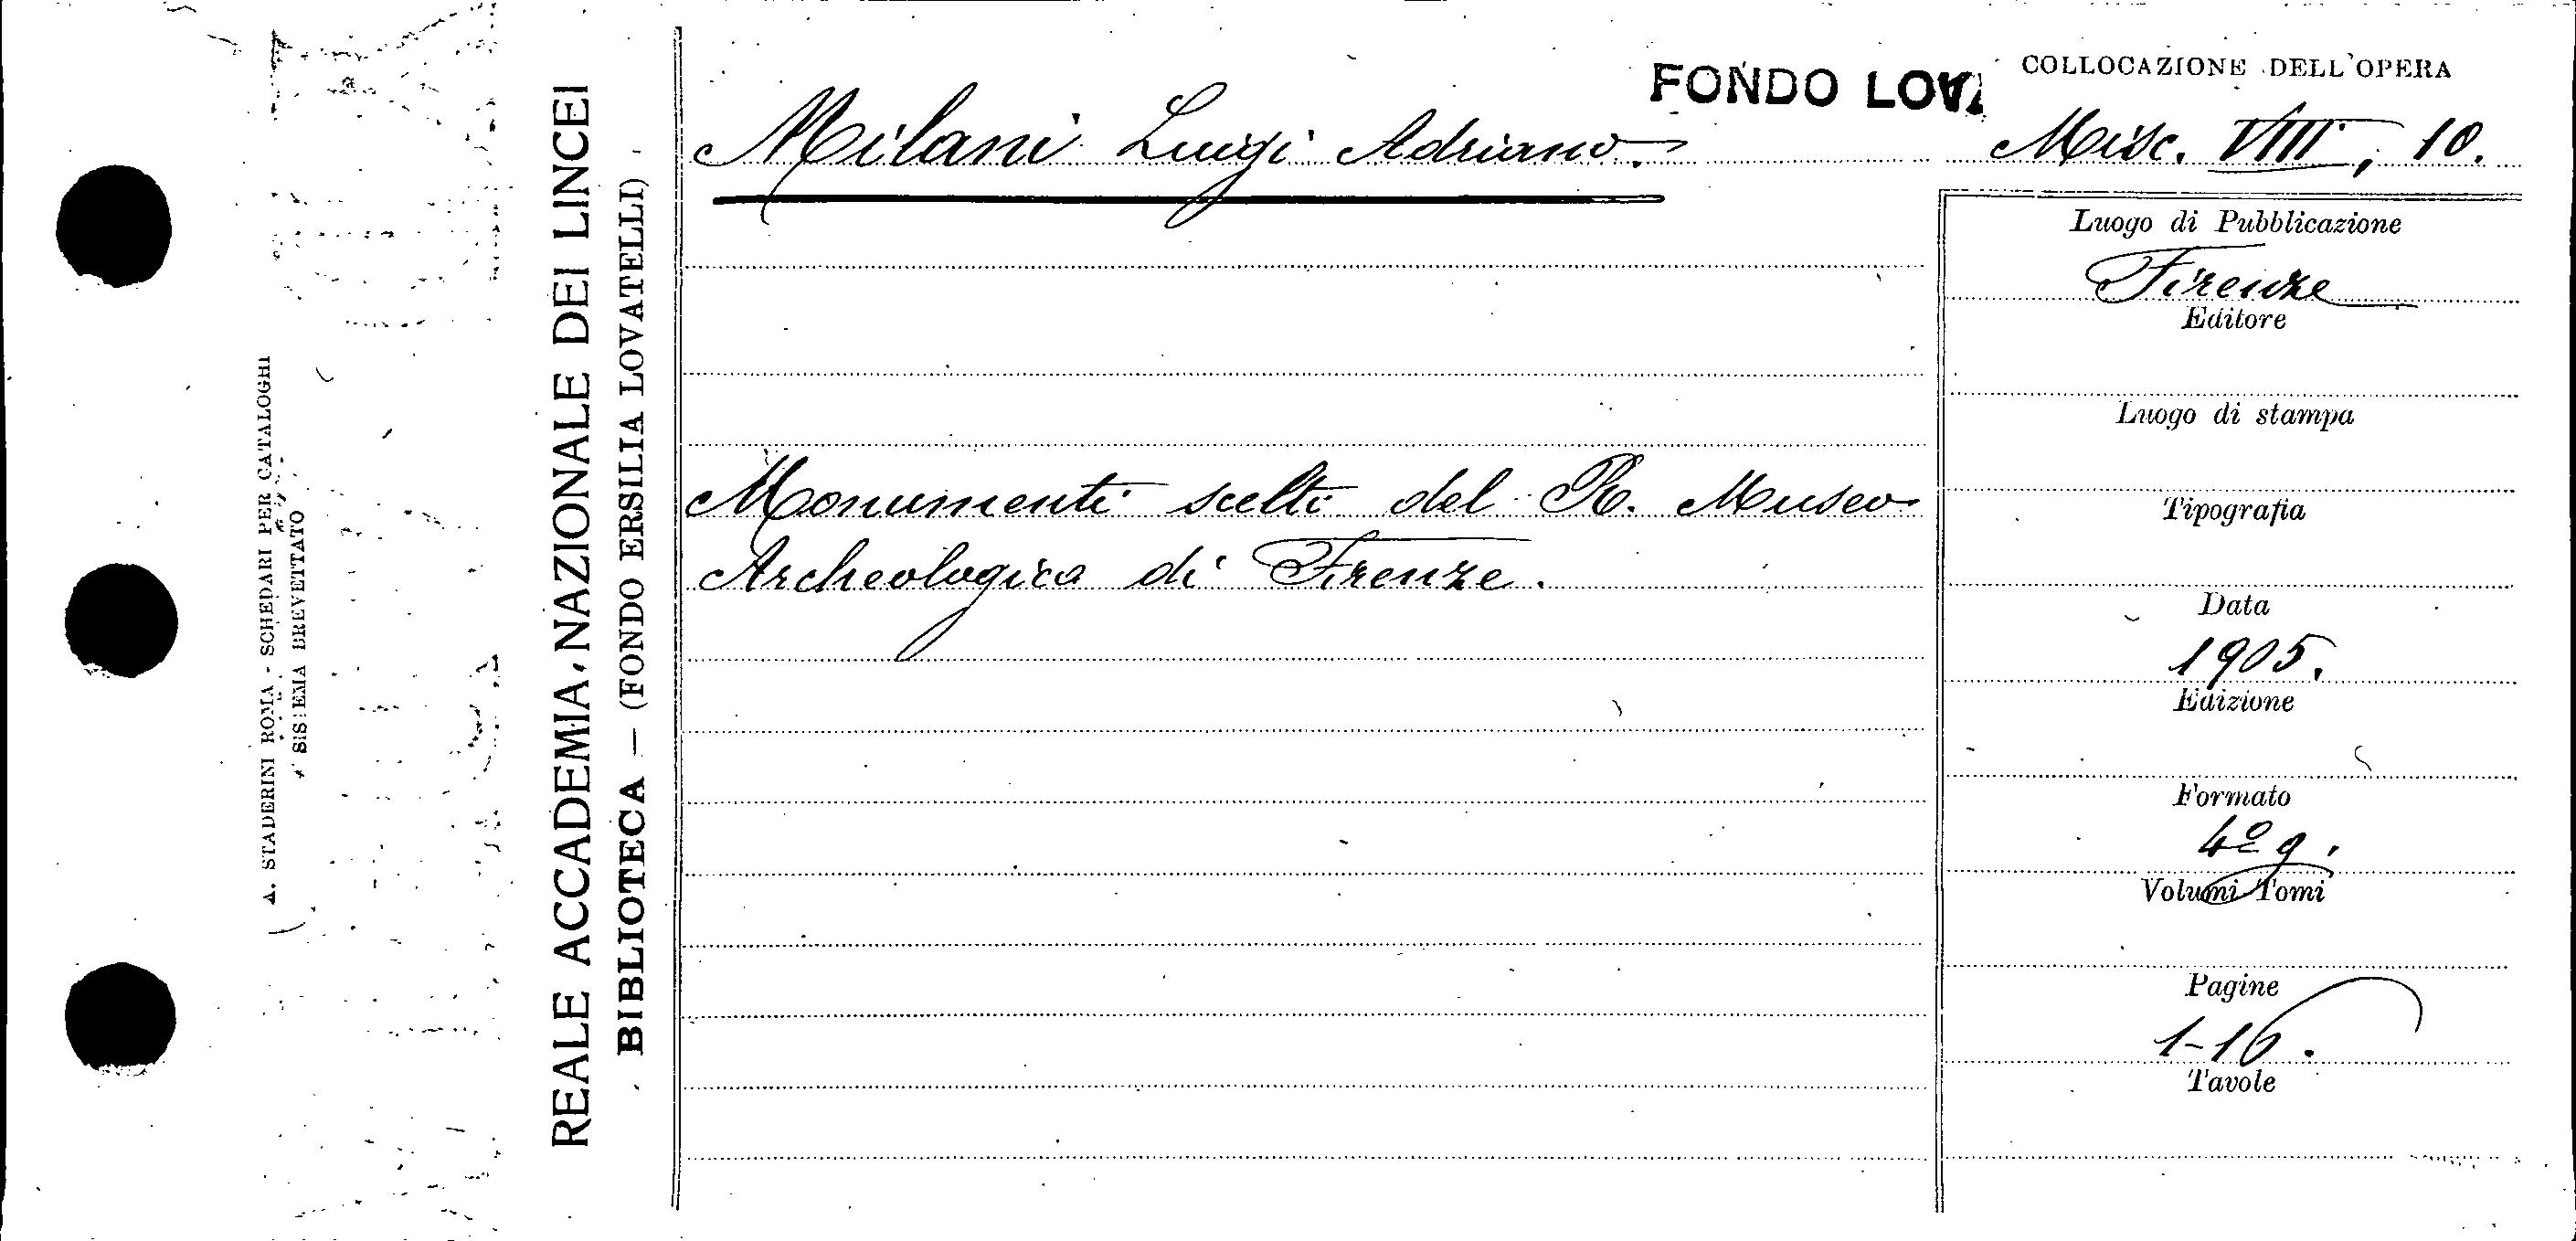 A. STADERINI ROMA - SCHEDARI PER CATALOGHI
SISTEMA BREVETTATO
REALE ACCADEMIA NAZIONALE DEI LINCEI
BIBLIOTECA — (FONDO ERSILIA LOVATELLI)
FONDO LOVA
COLLOCAZIONE DELL'OPERA
Milani Luigi Adriano.
Misc. VIII, 10.
Monumenti scelti del R. Museo
Archeologico di Firenze.
Luogo di Pubblicazione
Firenze
Editore
Luogo di stampa
Tipografia
Data
1905.
Edizione
Formato
4º g.
Volumi Tomi
Pagine
1-16.
Tavole